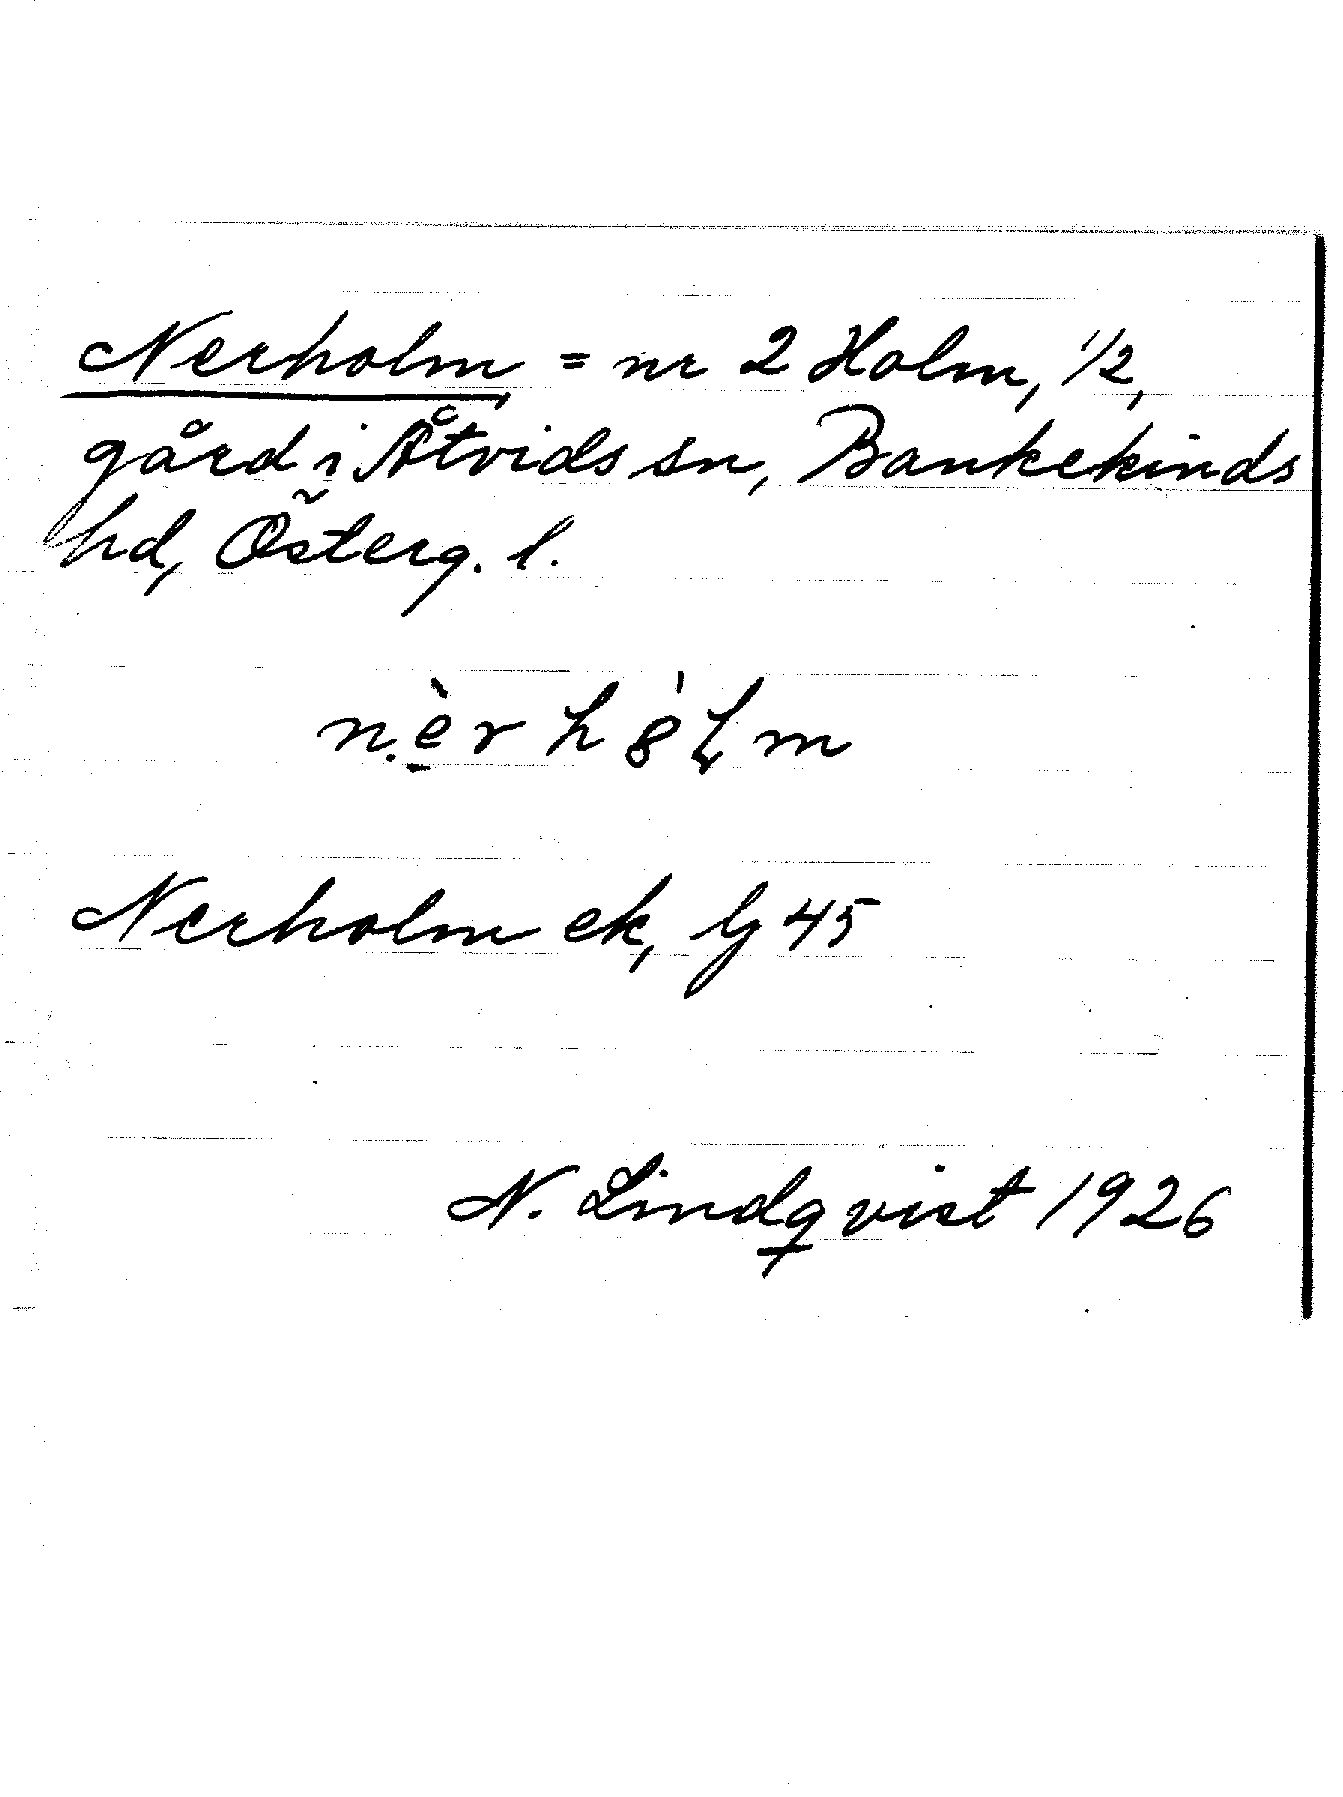 Nerholm = nr 2 Holm, 1/2,
gård i Åtvids sn, Bankekinds
hd, Österg. l.
Nerholm ek, lj 45
N. Lindqvist 1926